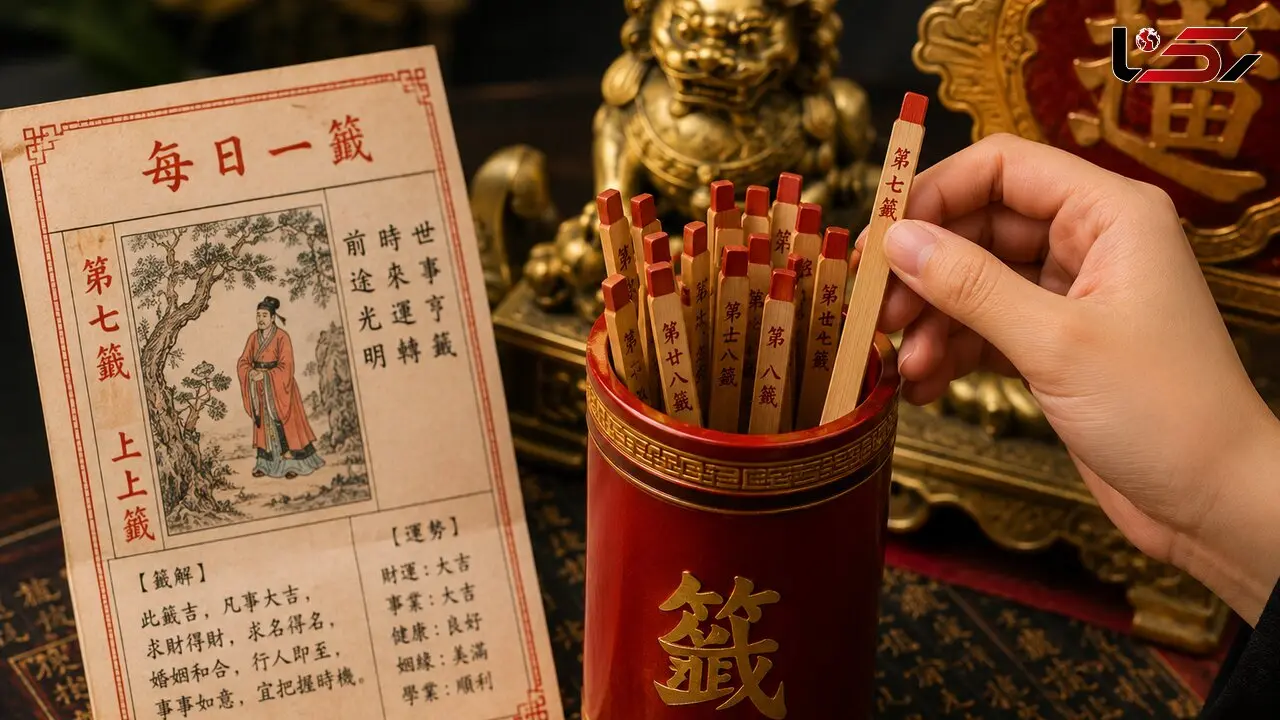 每日一籤
世事亨籤
時來運轉
前途光明
第七籤 上上籤
【籤解】
此籤吉，凡事大吉，
求財得財，求名得名，
婚姻和合，行人即至，
事事如意，宜把握時機。
【運勢】
財運：大吉
事業：大吉
健康：良好
姻緣：美滿
學業：順利
第七籤
第廿八籤
第八籤
第廿七籤
籤